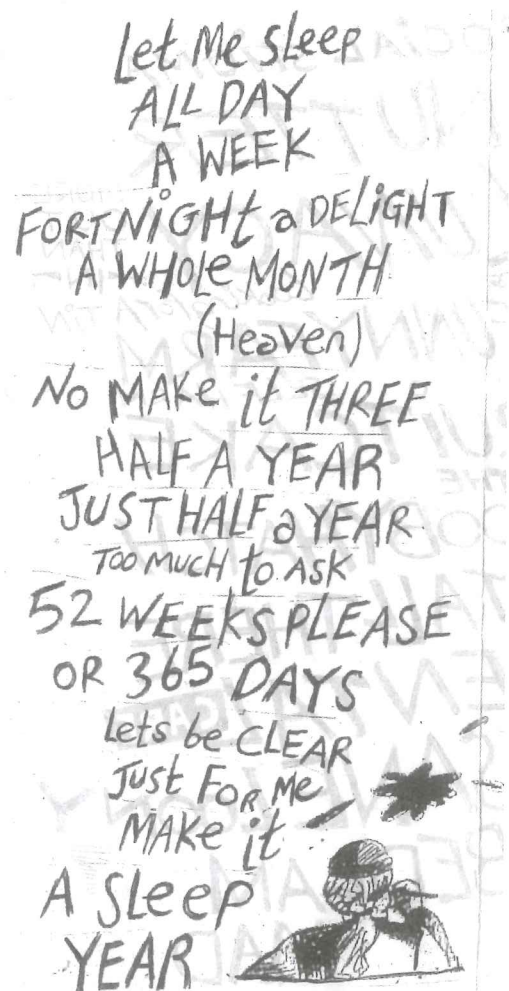 Let Me SLeep
ALL DAY
A WEEK
FORTNiGHt a DELiGHT
A WHOLe MONTH
(Heaven)
No MAKe it THREE
HALF A YEAR
JUST HALF a YEAR
TOO MUCH to ASK
52 WEEKS PLEASE
OR 365 DAYS
Lets be CLEAR
Just FOR Me
MAKe it
A SLeeP
YEAR